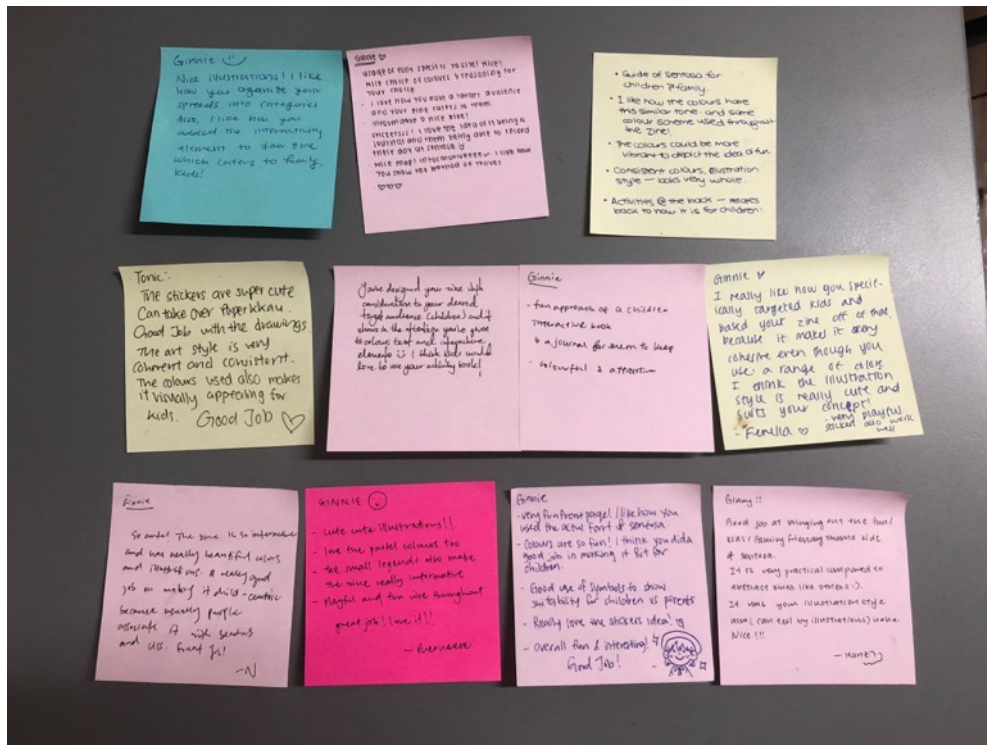 Ginnie
Nice illustrations! I like
how you organize your
spreads into categories
Also, I like how you
added the
element to zine
which caters to family,
kids!
Ginnie
usage of font specific to site! Nice!
Nice choice of colours & reasoning for
your choice
- I love how you have a target audience
and your zine caters to them.
- Informative & nice
- stickers!! I love the idea of it being a
journal and them being able to record
their day at sentosa
- Nice map! Informative I like how
you show the method of travel
• Guide of Sentosa for
children & family.
• I like how the colours have
this similar tone and same
colour scheme used throughout
the zine!
• The colours could be more
vibrant to depict the idea of fun
• Consistent colours, illustration
style — looks very whole.
• Activities @ the back — relates
back to how it is for children!
Tonic:
The stickers are super cute
Can take over Paperkkau.
Good Job with the drawings.
The art style is very
coherent and consistent.
The colours used also makes
it visually appealing for
kids. Good Job
You've designed your zine with
consideration to your desired
target audience (children) and it
shows in the attention you've given
to colours, text and interactive
elements I think kids would
love to use your activity book!
Ginnie
- fun approach of a children
interactive book
↳ a journal for them to keep
- colourful & attractive
Ginnie
I really like how you specif-
ically targeted kids and
based your zine off of that,
because it makes it very
cohesive even though you
use a range of colors.
I think the illustration
style is really cute and
suits your concept!
- very playful
stickers also work
well
- Fenella
Ginnie
So cute! The zine is so interactive
and has really beautiful colors
and illustrations. A really good
job on making it child-centric
because usually people
associate it with beaches
and USS. Great job!
-N
GINNIE
- cute cute illustrations!!
- love the pastel colours too
- the small legends also make
the zine really informative
- playful and fun zine throughout
great job! love it!!
Ginnie
- very fun front page! I like how you
used the actual font of sentosa.
- Colours are so fun! I think you did a
good job in making it fit for
children.
- Good use of symbols to show
suitability for children vs parents
- Really love the stickers idea!
- Overall fun & interesting!
Good Job!
Ginny!!
Good job at bringing out the fun/
kids/family friendly side
of sentosa.
It is very practical compared to
abstract ones like others :).
It was your illustration style
also (can tell by illustrations) haha
Nice!!!